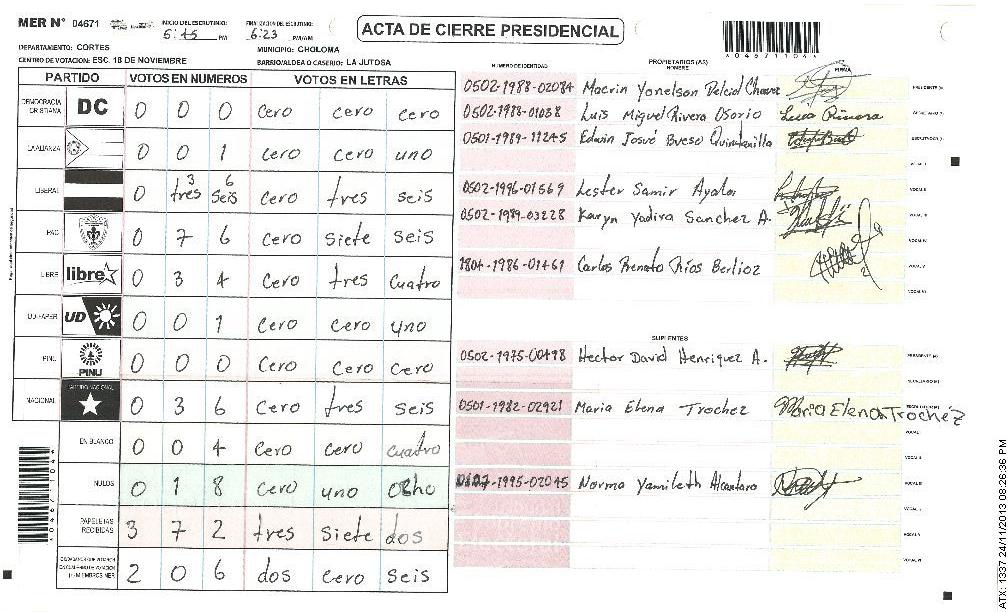 MER N° 04671 INICIO DEL ESCRUTINIO: 5:45 PM FINALIZACION DEL ESCRUTINIO: 6:23 PM/AM
ACTA DE CIERRE PRESIDENCIAL
*04671104*
DEPARTAMENTO: CORTES MUNICIPIO: CHOLOMA
CENTRO DE VOTACION: ESC. 18 DE NOVIEMBRE BARRIO/ALDEA O CASERIO: LA JUTOSA
PARTIDO VOTOS EN NUMEROS VOTOS EN LETRAS
DEMOCRACIA CRISTIANA DC 0 0 0 cero cero cero
LA ALIANZA 0 0 1 cero cero uno
LIBERAL 0 3 tres 6 seis cero tres seis
PAC 0 7 6 cero siete seis
LIBRE libre 0 3 4 cero tres cuatro
UD-FAPER UD 0 0 1 cero cero uno
PINU PINU 0 0 0 cero cero cero
NACIONAL 0 3 6 cero tres seis
EN BLANCO 0 0 4 cero cero cuatro
NULOS 0 1 8 cero uno ocho
PAPELETAS RECIBIDAS 3 7 2 tres siete dos
2 0 6 dos cero seis
NUMERO DE IDENTIDAD PROPIETARIOS (AS) NOMBRE FIRMA
0502-1988-02084 Macrin Yonelson Delcid Chavez
0502-1988-01038 Luis Miguel Rivera Osorio Luis Rivera
0501-1989-11245 Edwin Josvé Bueso Quintanilla
0502-1996-01569 Lester Samir Ayala
0502-1989-03228 Karyn Yadira Sanchez A.
1804-1986-01461 Carlos Renato Rios Berlioz
SUPLENTES
0502-1975-00498 Hector David Henriquez A.
0501-1982-02921 Maria Elena Trochez Maria Elena Trochez
-1995-02045 Norma Yamileth Alcantara
*04671104*
ATX: 1337 24/11/2013 08:28:36 PM